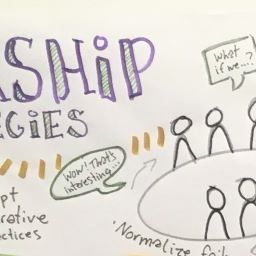 RSHiP
EGiES
What
if we...?
Wow! That's
interesting...
pt
rative
ctices
• Normalize fail